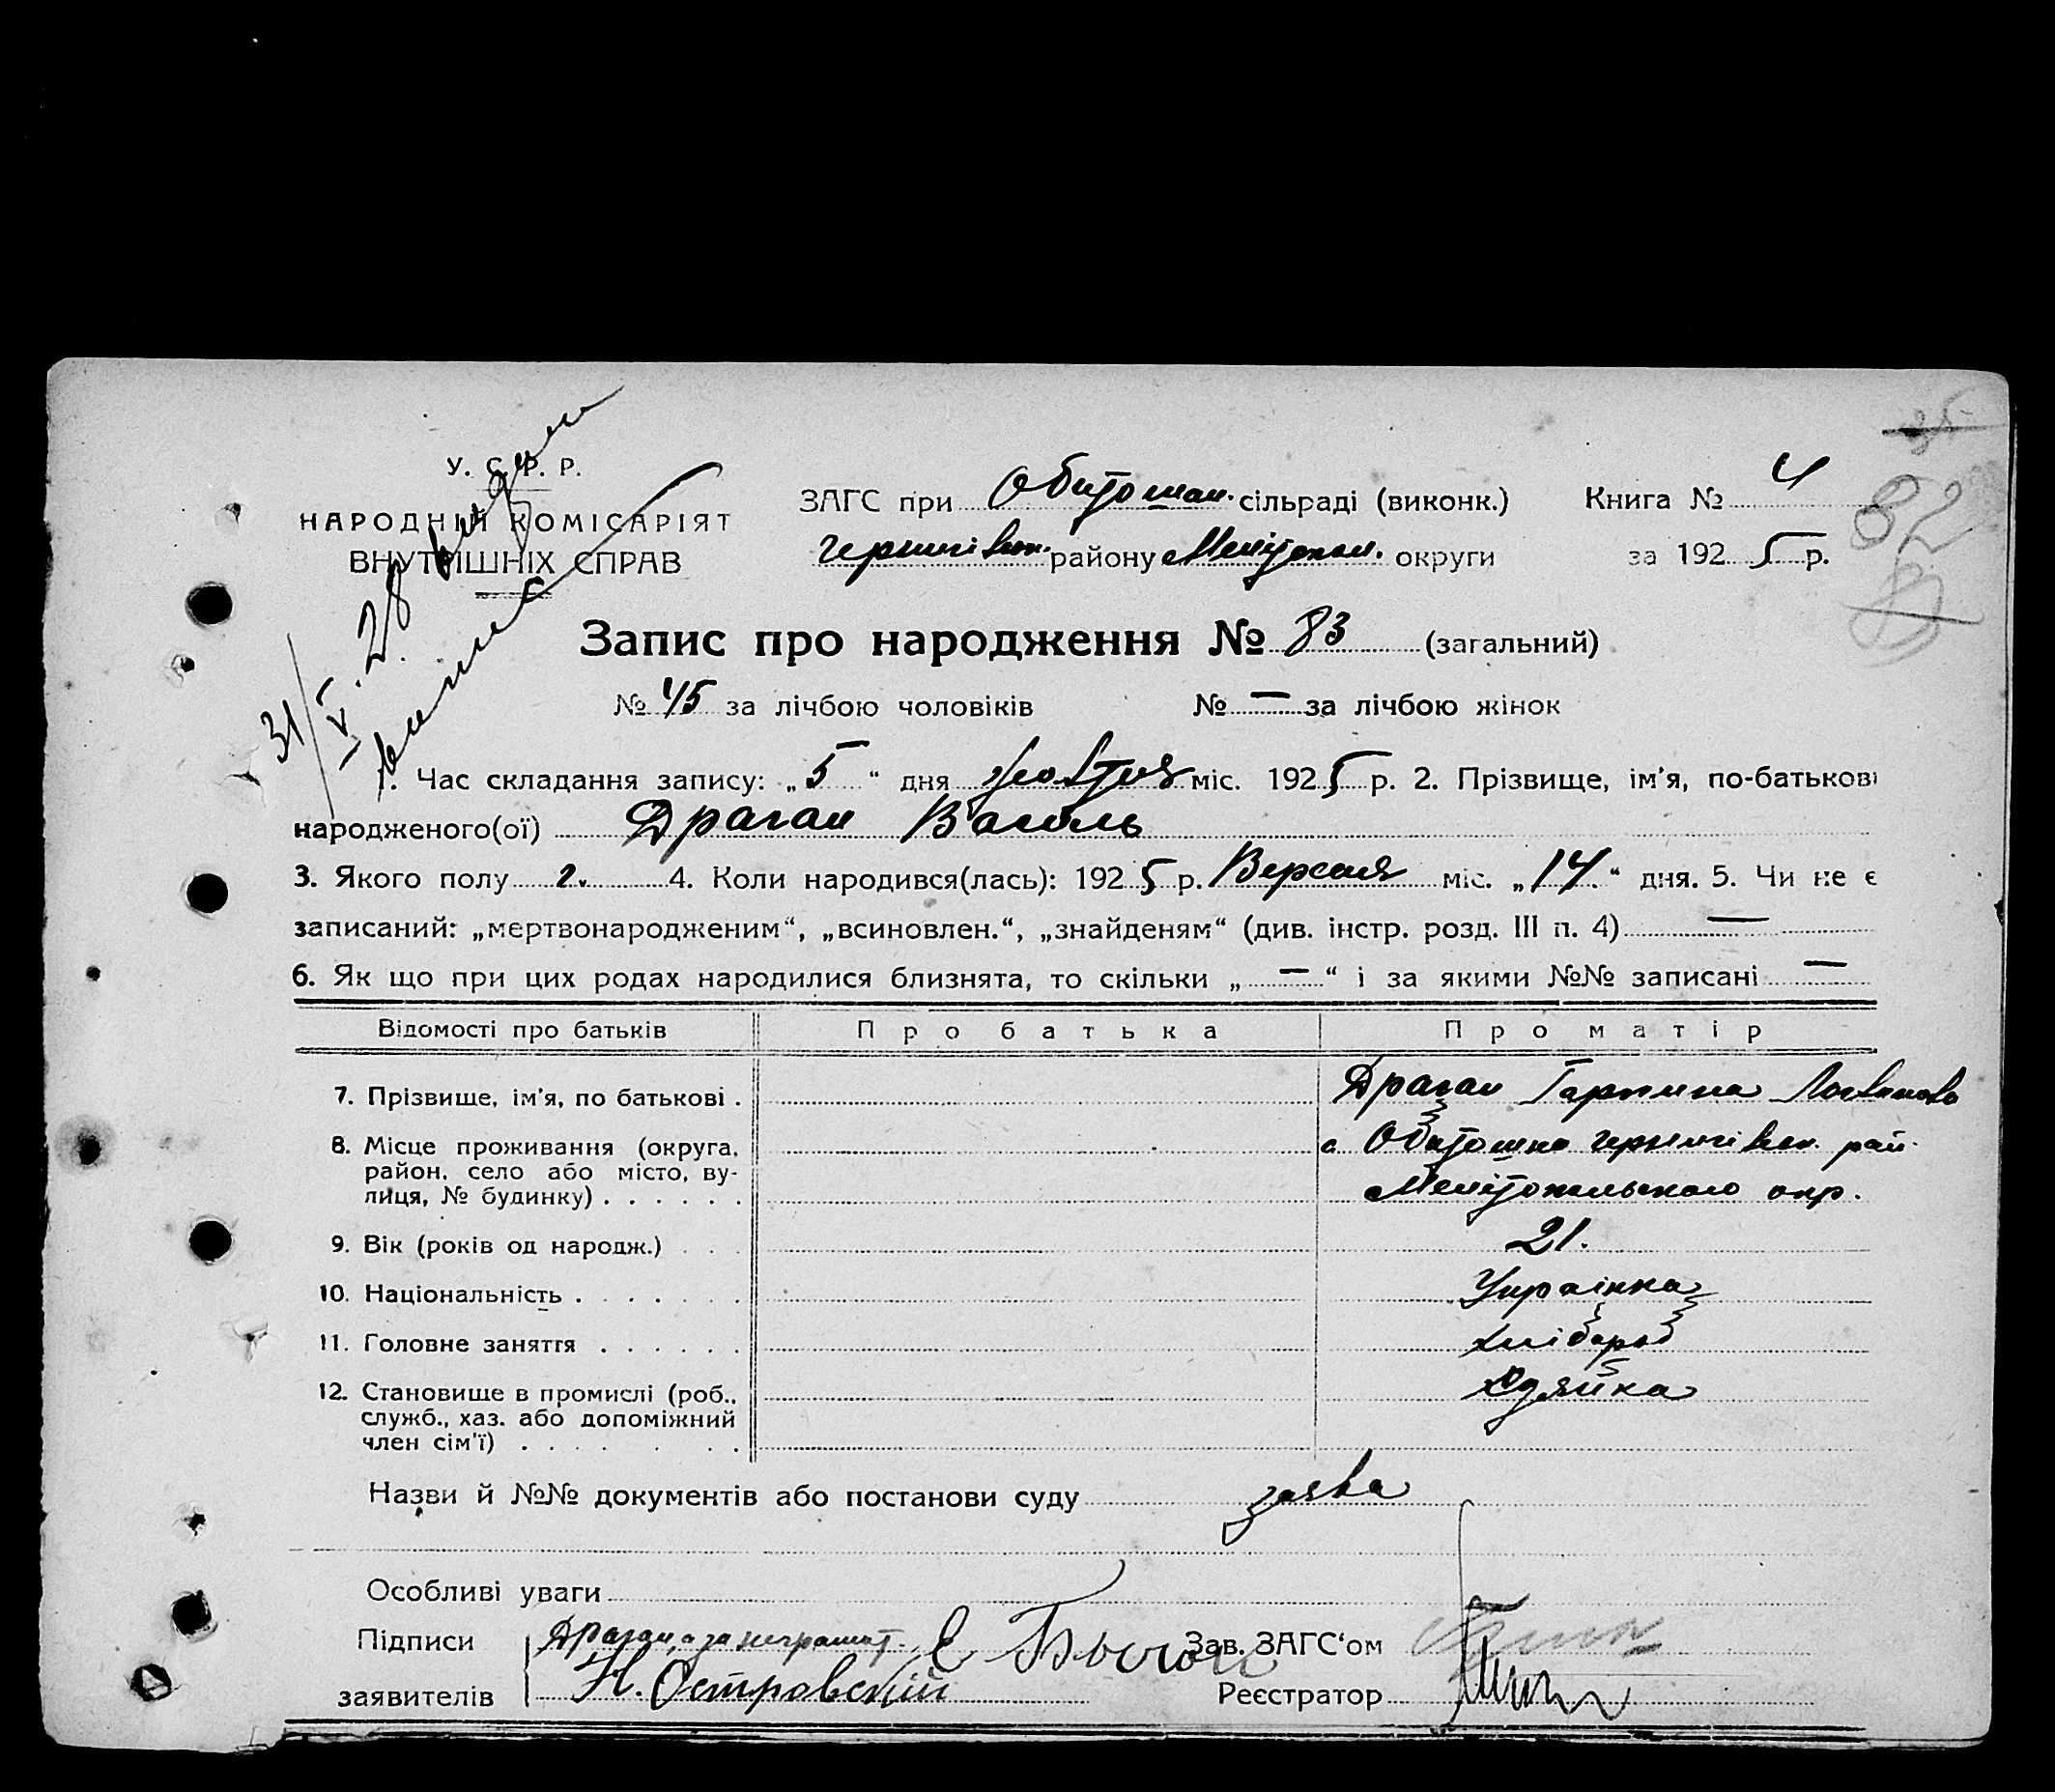 35
У. С. Р. Р.
НАРОДНІЙ КОМІСАРІЯТ
ВНУТРІШНІХ СПРАВ
31/V. 28 видан
виписка
ЗАГС при Обитошан. сільраді (виконк.) Книга № 4
Чернигівськ. району Мелітопол. округи за 1925 р.
82
Запис про народження № 83 (загальний)
№ 45 за лічбою чоловіків № — за лічбою жінок
1. Час складання запису: „5“ дня жовтня міс. 1925 р. 2. Прізвище, ім’я, по-батькові
народженого(ої) Драган Василь
3. Якого полу ч. 4. Коли народився(лась): 1925 р. Вересня міс. „14.“ дня. 5. Чи не є
записаний: „мертвонародженим“, „всиновлен.“, „знайденям“ (див. інстр. розд. III п. 4) —
6. Як що при цих родах народилися близнята, то скільки „—“ і за якими №№ записані —
Відомості про батьків Про батька Про матір
7. Прізвище, ім’я, по батькові . Драган Гарпина Логвинова
8. Місце проживання (округа, с. Обитошна Чернигівськ. рай.
район, село або місто, ву-
лиця, № будинку) . . . . . . Мелітопольського окр.
9. Вік (років од народж.) . . . 21.
10. Національність . . . . . . . Українка
11. Головне заняття . . . . . . хлібороб
12. Становище в промислі (роб.,
служб., хаз. або допоміжний
член сім’ї) . . . . . . .
Назви й №№ документів або постанови суду заява
Особливі уваги
Підписи Драган, а за неграмот. Зав. ЗАГС‘ом
заявителів Н. Островский Реєстратор